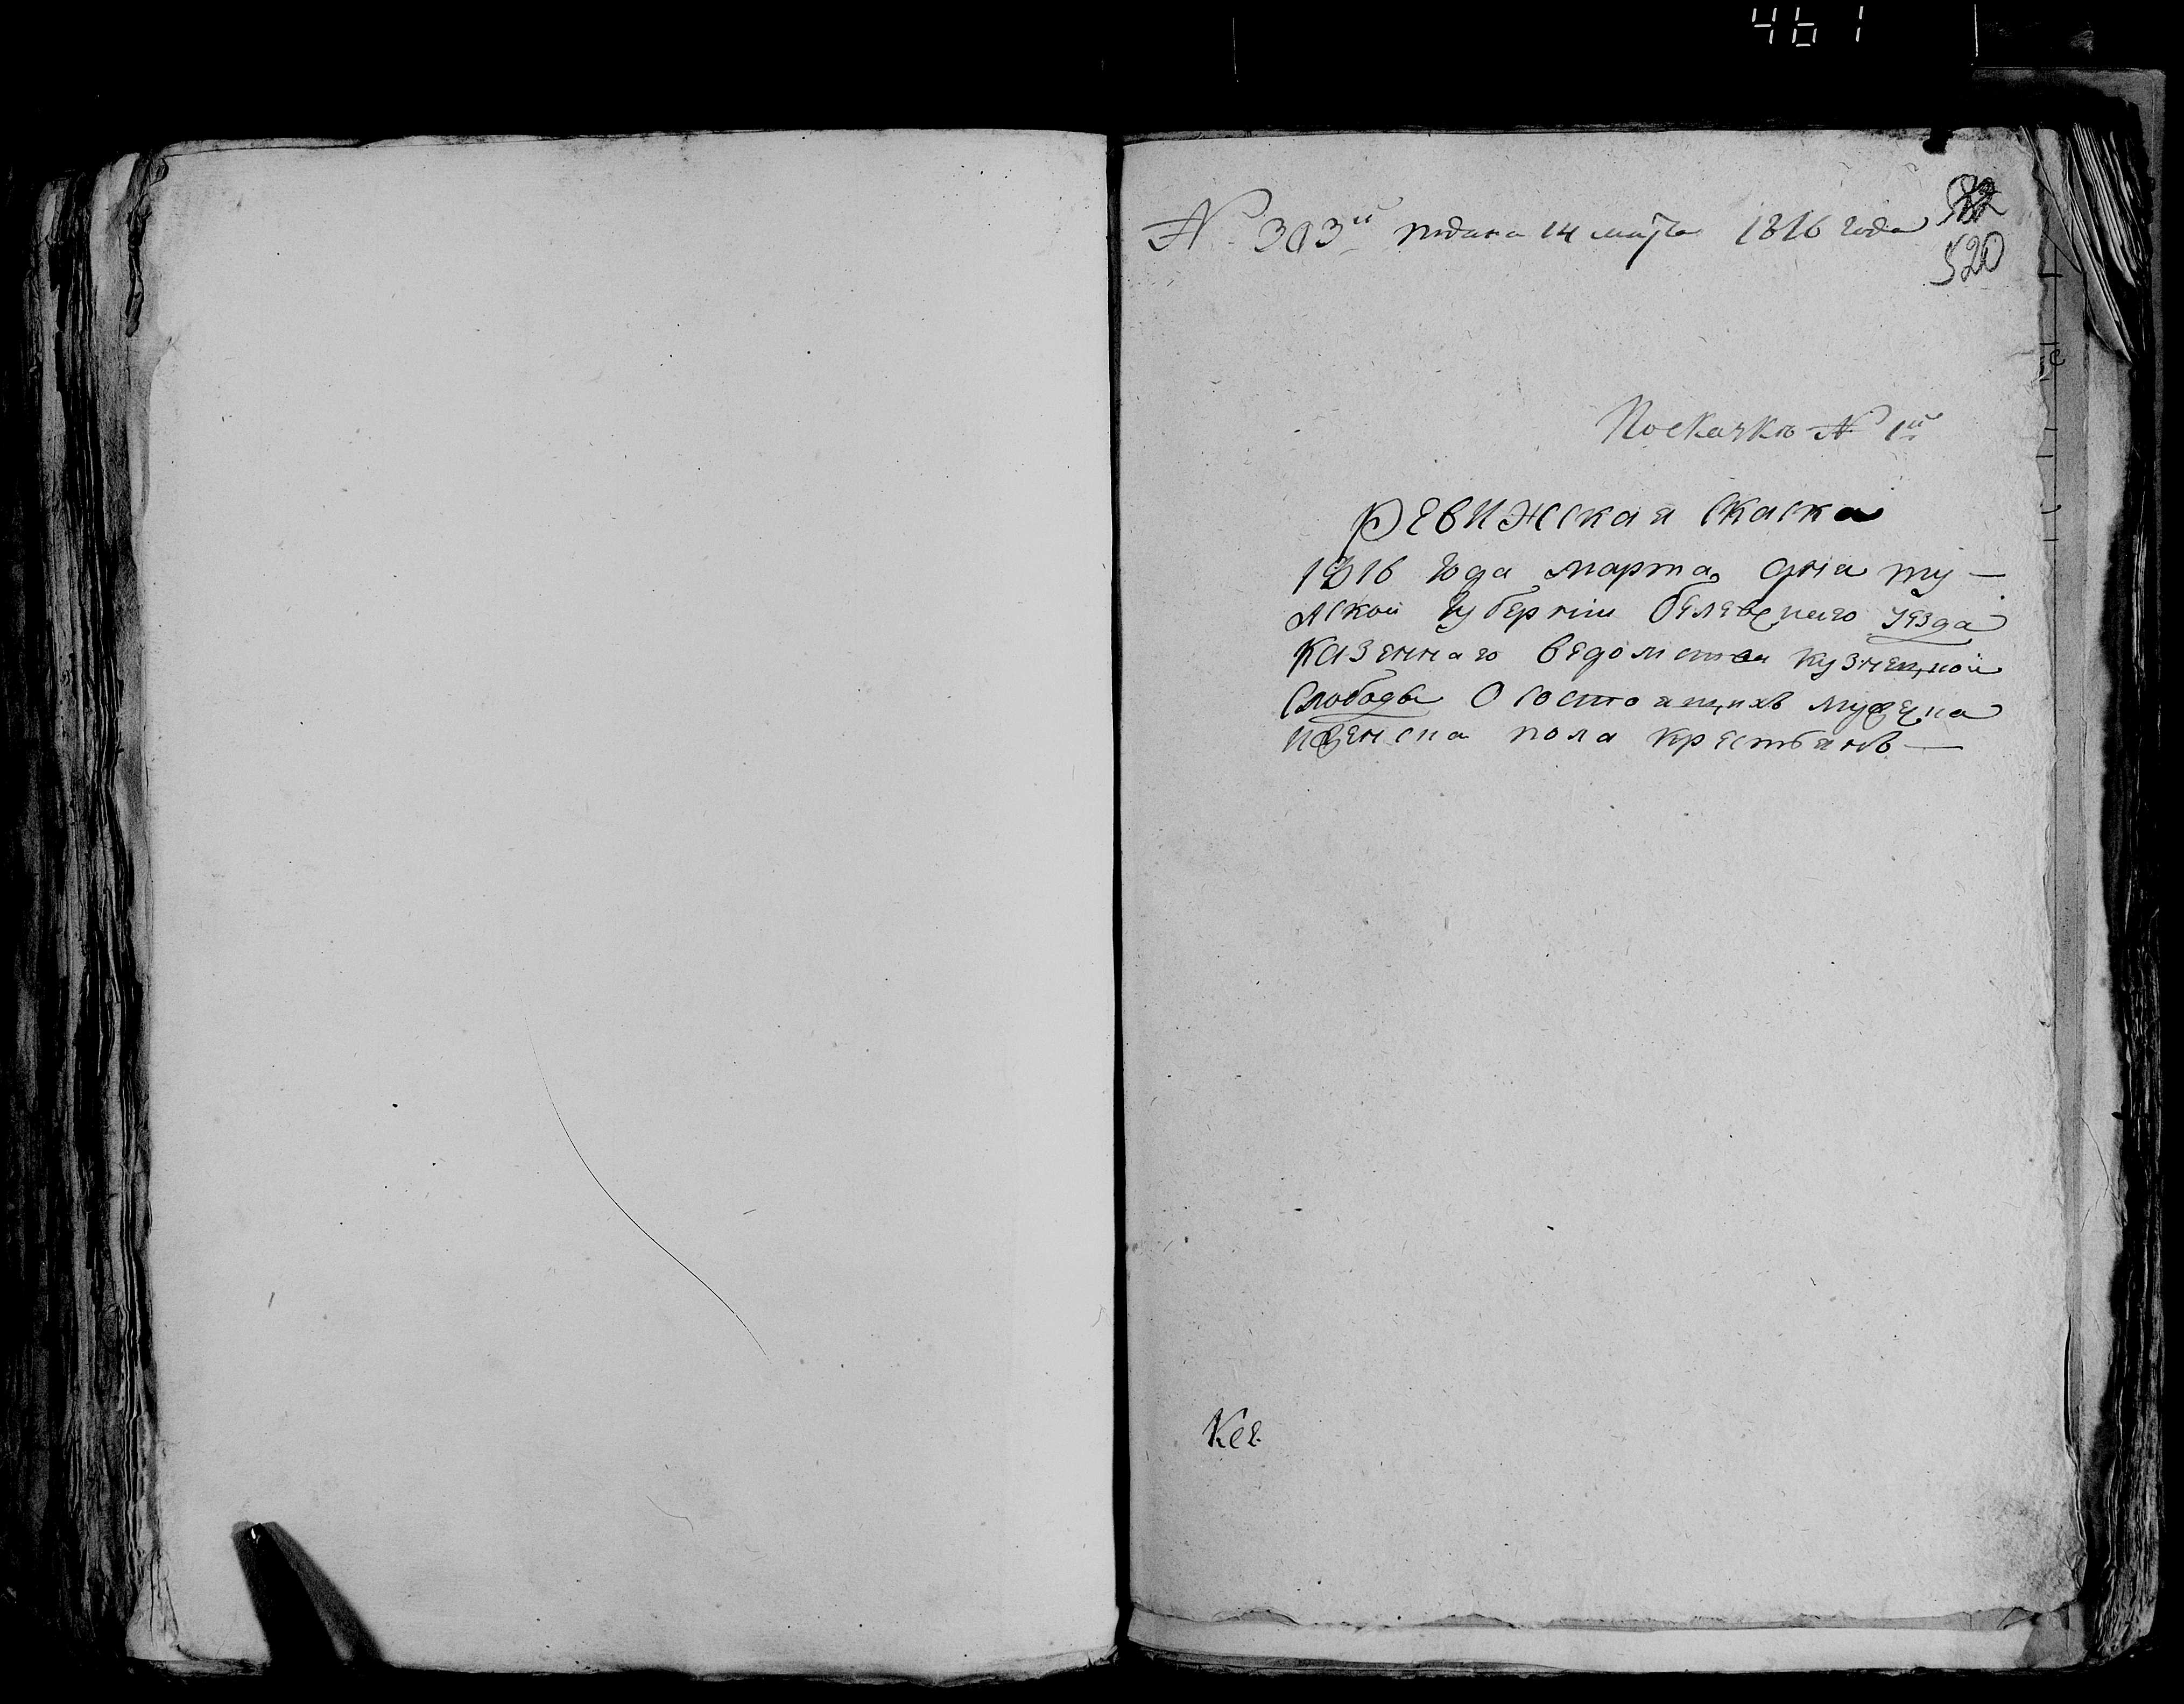 461
№ 303й подана 14 марта 1816 года
520
По скачкъ № 1й
РЕВИЖСкая Скаска
1816 года марта дня ту-
лской губернiи белевскаго уезда
казеннаго ведомства кузнецкой
Слободы О состоящихъ мужеска
и женска пола крестьянъ